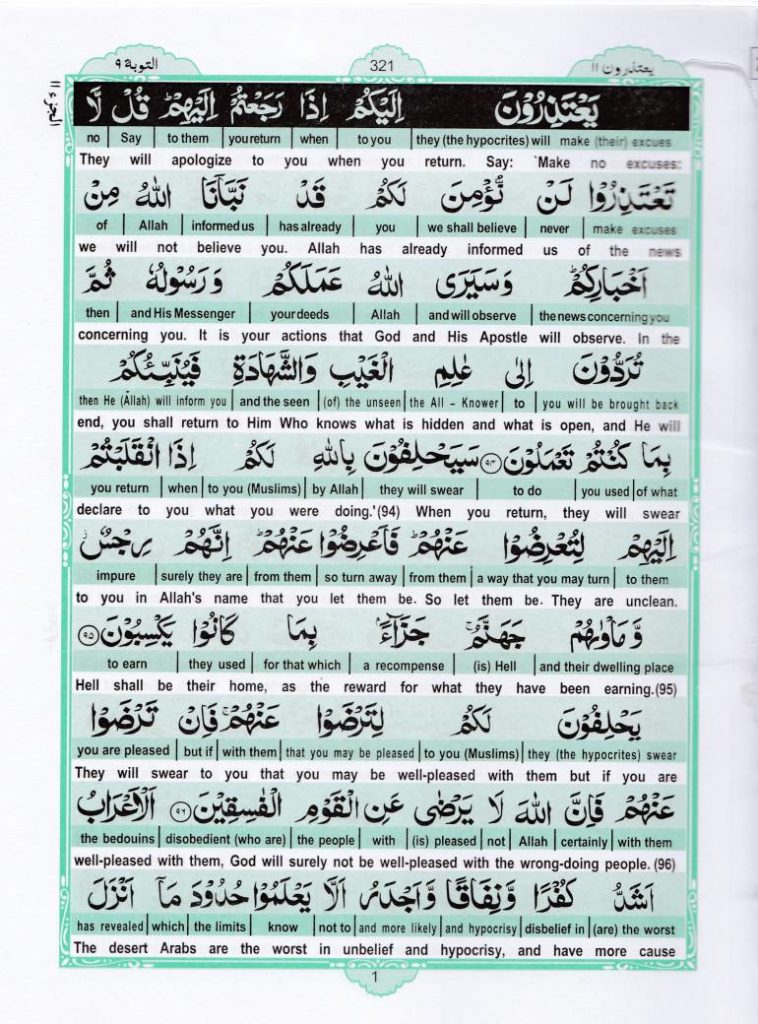 التوبة ٩
321
يعتذرون ١١
الجزء ١١
يَعْتَذِرُوْنَ اِلَيْكُمْ اِذَا رَجَعْتُمْ اِلَيْهِمْ ؕ قُلْ لَّا
no | Say | to them | you return | when | to you | they (the hypocrites) will make (their) excues
They will apologize to you when you return. Say: `Make no excuses:
تَعْتَذِرُوْا لَنْ نُّؤْمِنَ لَكُمْ قَدْ نَبَّاَنَا اللّٰهُ مِنْ
of | Allah | informed us | has already | you | we shall believe | never | make excuses
we will not believe you. Allah has already informed us of the news
اَخْبَارِكُمْ ؕ وَسَيَرَى اللّٰهُ عَمَلَكُمْ وَرَسُوْلُهٗ ثُمَّ
then | and His Messenger | your deeds | Allah | and will observe | the news concerning you
concerning you. It is your actions that God and His Apostle will observe. In the
تُرَدُّوْنَ اِلٰى عٰلِمِ الْغَيْبِ وَالشَّهَادَةِ فَيُنَبِّئُكُمْ
then He (Allah) will inform you | and the seen | (of) the unseen | the All - Knower | to | you will be brought back
end, you shall return to Him Who knows what is hidden and what is open, and He will
بِمَا كُنْتُمْ تَعْمَلُوْنَ ۹۴ سَيَحْلِفُوْنَ بِاللّٰهِ لَكُمْ اِذَا انْقَلَبْتُمْ
you return | when | to you (Muslims) | by Allah | they will swear | to do | you used | of what
declare to you what you were doing.'(94) When you return, they will swear
اِلَيْهِمْ لِتُعْرِضُوْا عَنْهُمْ ؕ فَاَعْرِضُوْا عَنْهُمْ ؕ اِنَّهُمْ رِجْسٌ
impure | surely they are | from them | so turn away | from them | a way that you may turn | to them
to you in Allah's name that you let them be. So let them be. They are unclean.
وَّمَاْوٰىهُمْ جَهَنَّمُ ۚ جَزَآءًۢ بِمَا كَانُوْا يَكْسِبُوْنَ ۹۵
to earn | they used | for that which | a recompense | (is) Hell | and their dwelling place
Hell shall be their home, as the reward for what they have been earning.(95)
يَحْلِفُوْنَ لَكُمْ لِتَرْضَوْا عَنْهُمْ ۚ فَاِنْ تَرْضَوْا
you are pleased | but if | with them | that you may be pleased | to you (Muslims) | they (the hypocrites) swear
They will swear to you that you may be well-pleased with them but if you are
عَنْهُمْ فَاِنَّ اللّٰهَ لَا يَرْضٰى عَنِ الْقَوْمِ الْفٰسِقِيْنَ ۹۶ اَلْاَعْرَابُ
the bedouins | disobedient (who are) | the people | with | (is) pleased | not | Allah | certainly | with them
well-pleased with them, God will surely not be well-pleased with the wrong-doing people. (96)
اَشَدُّ كُفْرًا وَّنِفَاقًا وَّاَجْدَرُ اَلَّا يَعْلَمُوْا حُدُوْدَ مَآ اَنْزَلَ
has revealed | which | the limits | know | not to | and more likely | and hypocrisy | disbelief in | (are) the worst
The desert Arabs are the worst in unbelief and hypocrisy, and have more cause
1